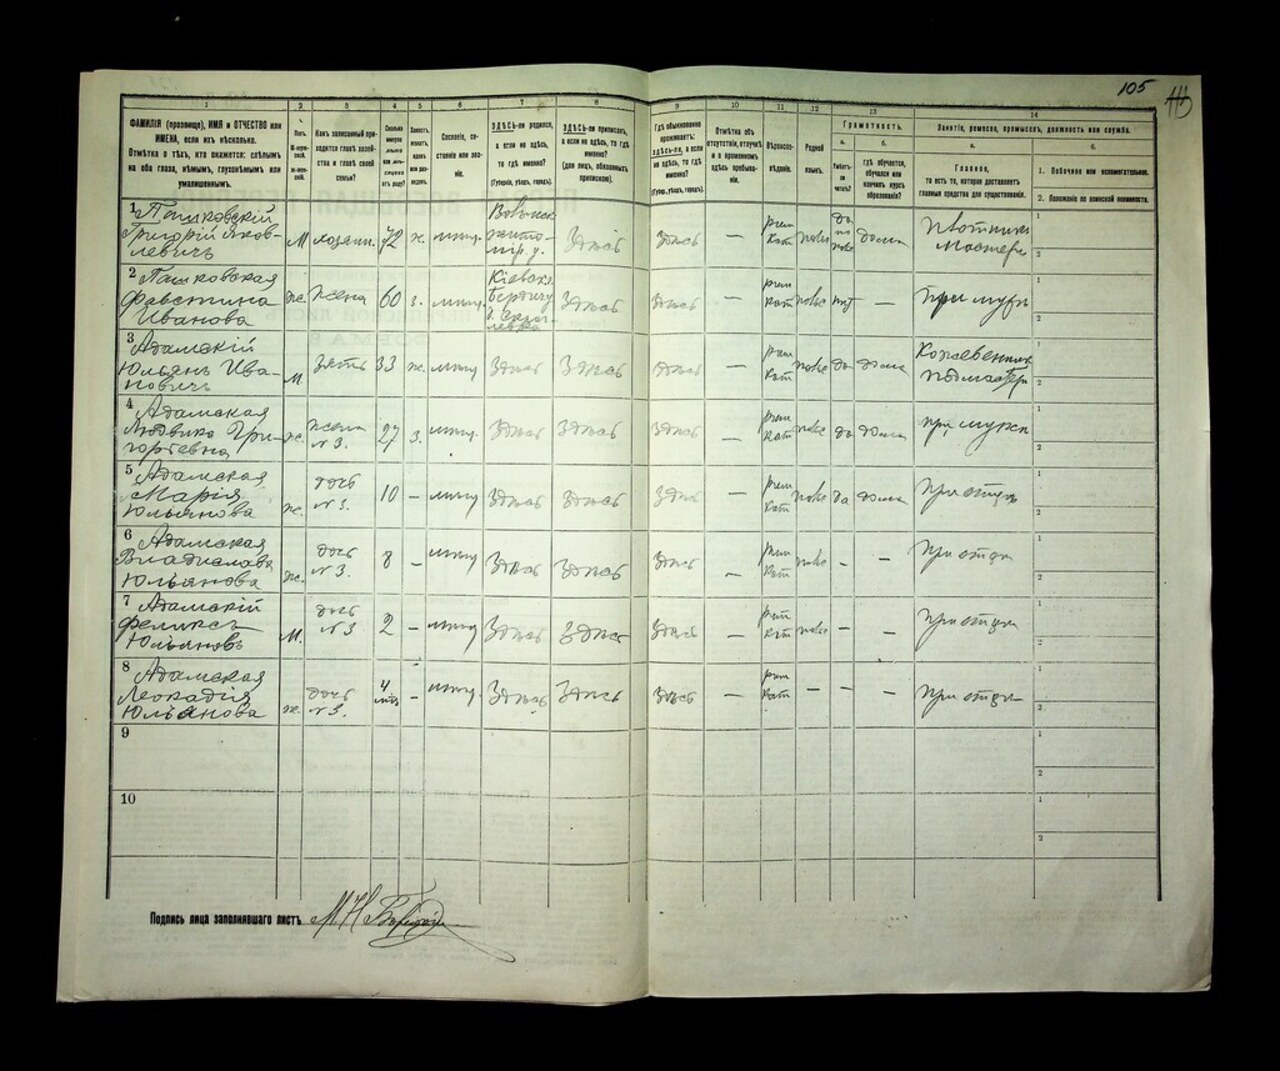 105
1 2 3 4 5 6 7 8 9 10 11 12 13 14
ФАМИЛІЯ (прозвище), ИМЯ и ОТЧЕСТВО или ИМЕНА, если ихъ нѣсколько.
Отмѣтка о тѣхъ, кто окажется: слѣпымъ на оба глаза, нѣмымъ, глухонѣмымъ или умалишеннымъ.
Полъ.
М-мужской.
Ж-женскій.
Какъ записанный приходится главѣ хозяйства и главѣ своей семьи?
Сколько минуло лѣтъ или мѣсяцевъ отъ роду?
Холостъ, женатъ, вдовъ или разведенъ.
Сословіе, состояніе или званіе.
ЗДѢСЬ-ли родился, а если не здѣсь, то гдѣ именно?
(Губернія, уѣздъ, городъ).
ЗДѢСЬ-ли приписанъ, а если не здѣсь, то гдѣ именно?
(для лицъ, обязанныхъ припискою).
Гдѣ обыкновенно проживаетъ: здѣсь-ли, а если не здѣсь, то гдѣ именно?
(Губерн., уѣздъ, городъ).
Отмѣтка объ отсутствіи, отлучкѣ и о временномъ здѣсь пребываніи.
Вѣроисповѣданіе.
Родной языкъ.
Грамотность.
а. Умѣетъ-ли читать?
б. гдѣ обучается, обучался или кончилъ курсъ образованія?
Занятіе, ремесло, промыселъ, должность или служба.
а. Главное, то есть то, которое доставляетъ главныя средства для существованія.
б.
1. Побочное или вспомогательное.
2. Положеніе по воинской повинности.
1 Пашковскій Григорій Яковлевичъ М хозяин. 72 ж. мѣщ. Волынск житомір. у. Здѣсь Здѣсь — рим кат польс да по польс дома Плотникъ Мастеръ 1 2
2 Пашковская Фавстина Иванова ж. жена 60 з. мѣщ. Кіевск. Бердич у Здѣсь Здѣсь — рим кат польс нѣт — При мужѣ 1 2
3 Адамскій Юльянъ Ивановичъ М зять 33 ж. мѣщ Здѣсь Здѣсь Здѣсь — рим кат польс да дома Кожевенникъ подмастер 1 2
4 Адамская Людвика Григорьевна ж. жена № 3. 27 з. мѣщ. Здѣсь Здѣсь Здѣсь — рим кат польс да дома при мужѣ 1 2
5 Адамская Марія Юльянова ж. дочь № 3. 10 — мѣщ Здѣсь Здѣсь Здѣсь — рим кат польс да дома При отцѣ 1 2
6 Адамская Владислава Юльянова ж. дочь № 3. 8 — мѣщ. Здѣсь Здѣсь Здѣсь — рим кат польс — — При отцѣ 1 2
7 Адамскій Феликсъ Юльяновъ М. № 3 2 — мѣщ Здѣсь Здѣсь Здѣсь — рим кат польс — — При отцѣ 1 2
8 Адамская Леокадія Юльянова ж. дочь № 3. 4 — мѣщ. Здѣсь Здѣсь Здѣсь — рим кат — — — При отцѣ 1 2
9 1 2
10 1 2
Подпись лица заполнявшаго листъ